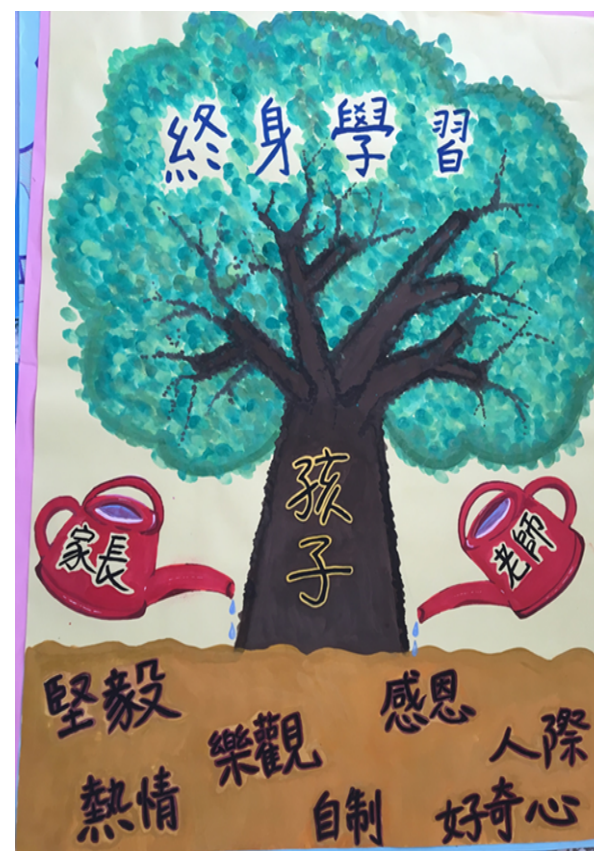 終身學習
孩子
家長
老師
堅毅
感恩
樂觀
人際
熱情
自制
好奇心